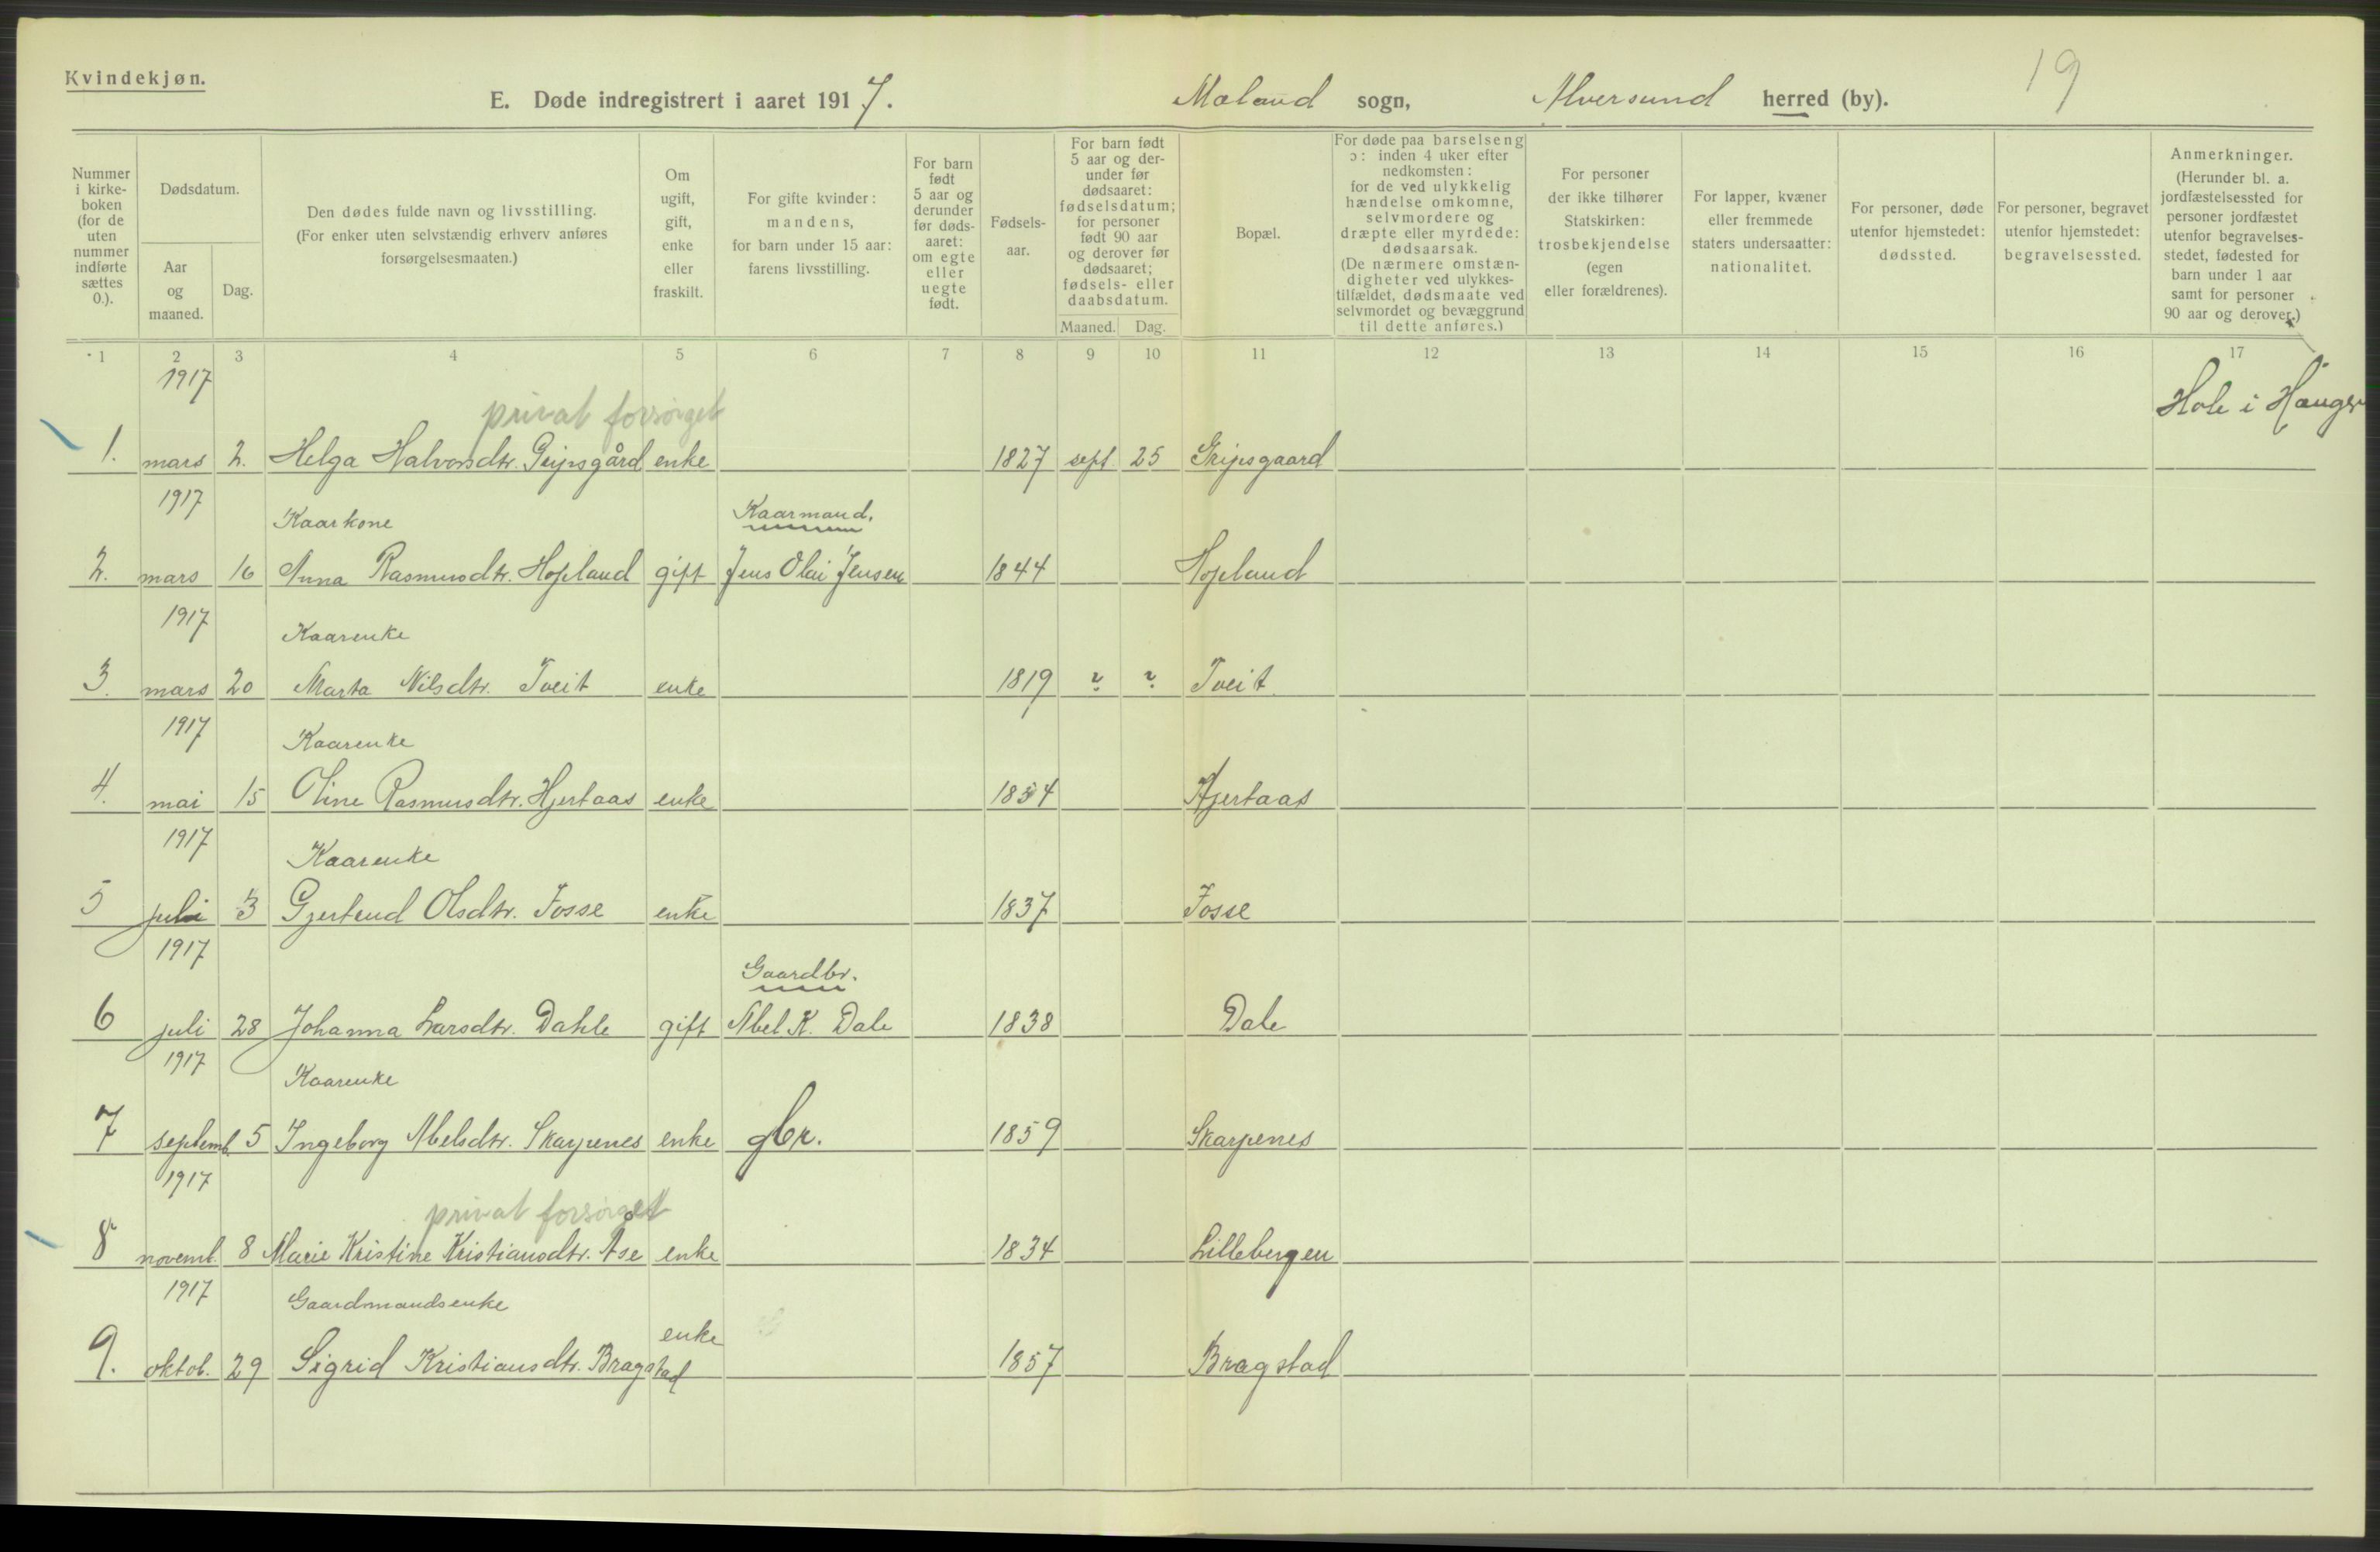 Kvindekjøn.
E. Døde indregistrert i aaret 1917. Mæland sogn, Alversund herred (by). 19
Nummer i kirke-boken (for de uten nummer indførte sættes 0.).
Dødsdatum.
Aar og maaned.
Dag.
Den dødes fulde navn og livsstilling. (For enker uten selvstændig erhverv anføres forsørgelsesmaaten.)
Om ugift, gift, enke eller fraskilt.
For gifte kvinder: mandens, for barn under 15 aar: farens livsstilling.
For barn født 5 aar og derunder før døds-aaret: om egte eller uegte født.
Fødsels-aar.
For barn født 5 aar og der-under før dødsaaret: fødselsdatum; for personer født 90 aar og derover før dødsaaret; fødsels- eller daabsdatum.
Maaned. Dag.
Bopæl.
For døde paa barselseng ɔ: inden 4 uker efter nedkomsten: for de ved ulykkelig hændelse omkomne, selvmordere og dræpte eller myrdede: dødsaarsak. (De nærmere omstæn-digheter ved ulykkes-tilfældet, dødsmaate ved selvmordet og bevæggrund til dette anføres.)
For personer der ikke tilhører Statskirken: trosbekjendelse (egen eller forældrenes).
For lapper, kvæner eller fremmede staters undersaatter: nationalitet.
For personer, døde utenfor hjemstedet: dødssted.
For personer, begravet utenfor hjemstedet: begravelsessted.
Anmerkninger. (Herunder bl. a. jordfæstelsessted for personer jordfæstet utenfor begravelses-stedet, fødested for barn under 1 aar samt for personer 90 aar og derover.)
1 2 3 4 5 6 7 8 9 10 11 12 13 14 15 16 17
1917 privat forsørget Hole i Hauger
1. mars 2. Helga Halvorsdtr. Gripsgård enke 1827 sept. 25 Gripsgaard
1917 Kaarkone Kaarmand.
2. mars 16 Anna Rasmusdtr. Hopland gift Jens Olai Jensen 1844 Hopland
1917 Kaarenke
3. mars 20 Marta Nilsdtr. Tveit enke 1819 ? ? Tveit
1917 Kaarenke
4. mai 15 Oline Rasmusdtr. Hjertaas enke 1854 Hjertaas
1917 Kaarenke
5 juli 3 Gjertrud Olsdtr. Fosse enke 1837 Fosse
1917 Gaardbr.
6 juli 28 Johanna Larsdtr. Dahle gift Abel K. Dale 1838 Dale
1917 Kaarenke
7 septemb. 5 Ingeborg Abelsdtr. Skarpenes enke gbr. 1859 Skarpenes
1917 privat forsørget
8 novemb. 8 Marie Kristine Kristiansdtr. Åse enke 1834 Lillebergen
1917 Gaardmandsenke
9. oktob. 29 Sigrid Kristiansdtr. Bragstad enke 1857 Bragstad